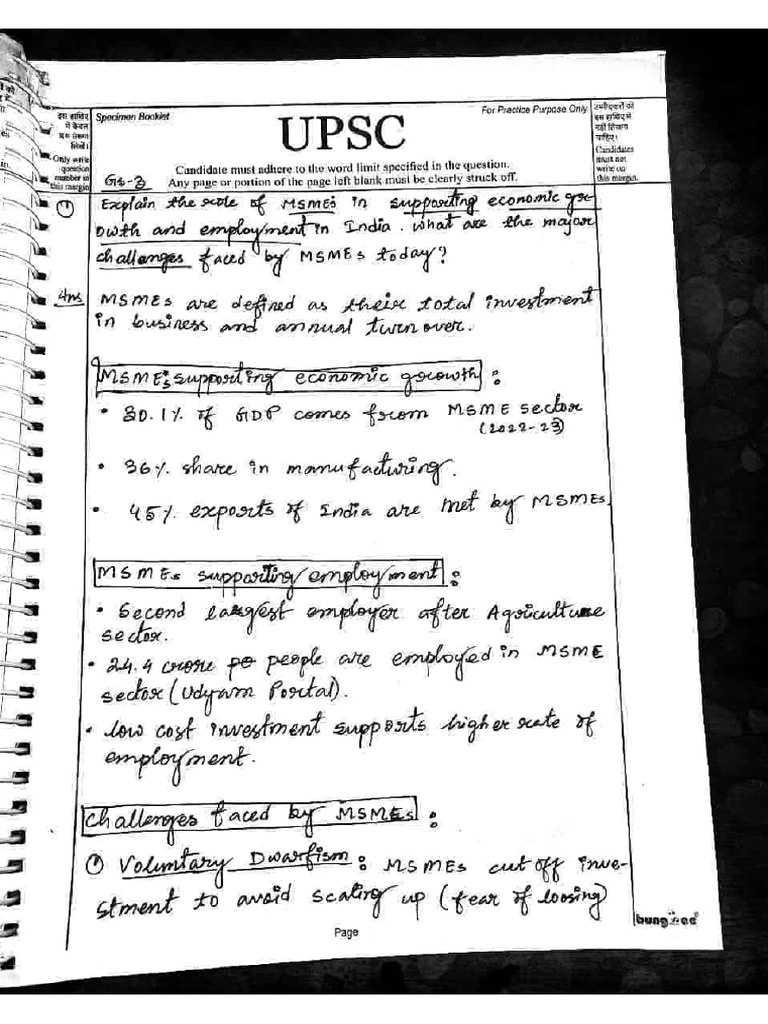 Specimen Booklet
For Practice Purpose Only
UPSC
Candidate must adhere to the word limit specified in the question.
Any page or portion of the page left blank must be clearly struck off.
इस हाशिए
में केवल
प्रश्न संख्या
लिखें।
Only write
question
number in
this margin
उम्मीदवारों को
इस हाशिए में
नहीं लिखना
चाहिए।
Candidates
must not
write on
this margin.
GS-3
① Explain the role of MSMEs in supporting economic gro-
owth and employment in India. what are the major
challenges faced by MSMEs today?
Ans MSMEs are defined as their total investment
in business and annual turn over.
MSMEs supporting economic growth :
• 30.1% of GDP comes from MSME sector
(2022-23)
• 36% share in manufacturing.
• 45% exports of India are met by MSMEs.
MSMEs supporting employment :
• Second largest employer after Agriculture
sector.
• 24.4 crore people are employed in MSME
sector (Udyam Portal).
• low cost investment supports higher rate of
employment.
Challenges faced by MSMEs :
① Voluntary Dwarfism : MSMEs cut off inve-
stment to avoid scaling up (fear of loosing)
Page